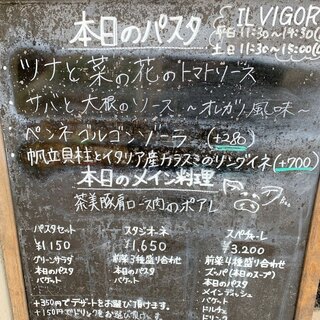 本日のパスタ
IL VIGOR
平日 11:30~14:30
土日 11:30~15:00
ツナと菜の花のトマトソース
サバと大根のソース ~オレガノ風味~
ペンネゴルゴンゾーラ (+280)
帆立貝柱とイタリア産カラスミのリングイネ (+700)
本日のメイン料理
茶美豚肩ロース肉のポアレ
パスタセット
¥1150
グリーンサラダ
本日のパスタ
バケット
スタジオーネ
¥1,650
前菜3種盛り合わせ
本日のパスタ
バケット
スパチャーレ
¥3,200
前菜4種盛り合わせ
ズッパ(本日のスープ)
本日のパスタ
メインディッシュ
バケット
ドルチェ
ドリンク
+350円でデザートをお選び頂けます。
+150円でドリンクをお選び頂けます。